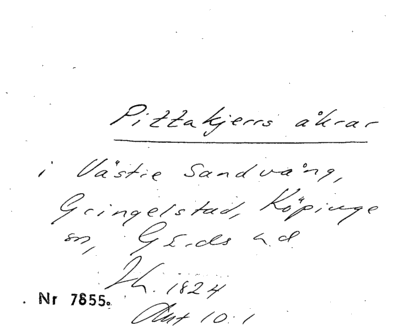 Pittakjerrs åkrar
i Västre Sandvång,
Gringelstad, Köpinge
sn, Gärds hd
Lh. 1824
Akt 10.1
Nr 7855.